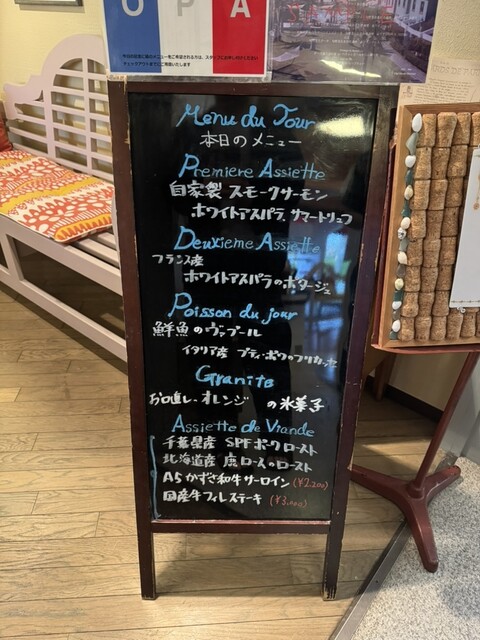 O P A
Menu du Jour
本日のメニュー
Premiere Assiette
自家製 スモークサーモン
ホワイトアスパラ サマートリュフ
Deuxieme Assiette
フランス産
ホワイトアスパラのポタージュ
Poisson du jour
鮮魚のヴァプール
イタリア産 プティ・ポワのフリカッセ
Granite
お口直し・オレンジ の氷菓子
Assiette de Viande
千葉県産 SPFポークロースト
北海道産 鹿ロースのロースト
A5かずさ和牛サーロイン (¥2,200)
国産牛フィレステーキ (¥3,000)